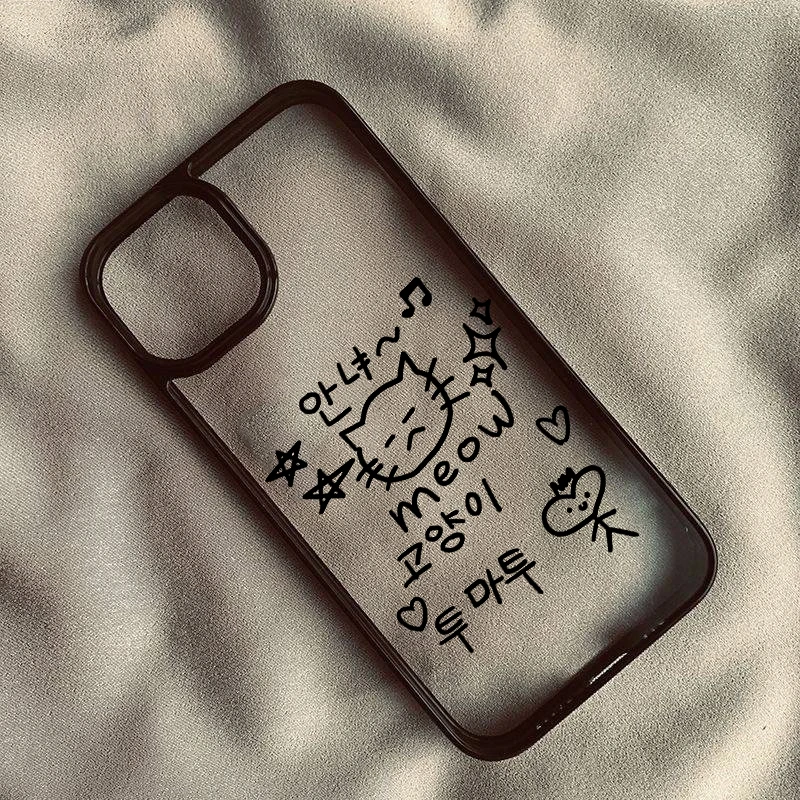 안녀~
meow
고양이
투마투